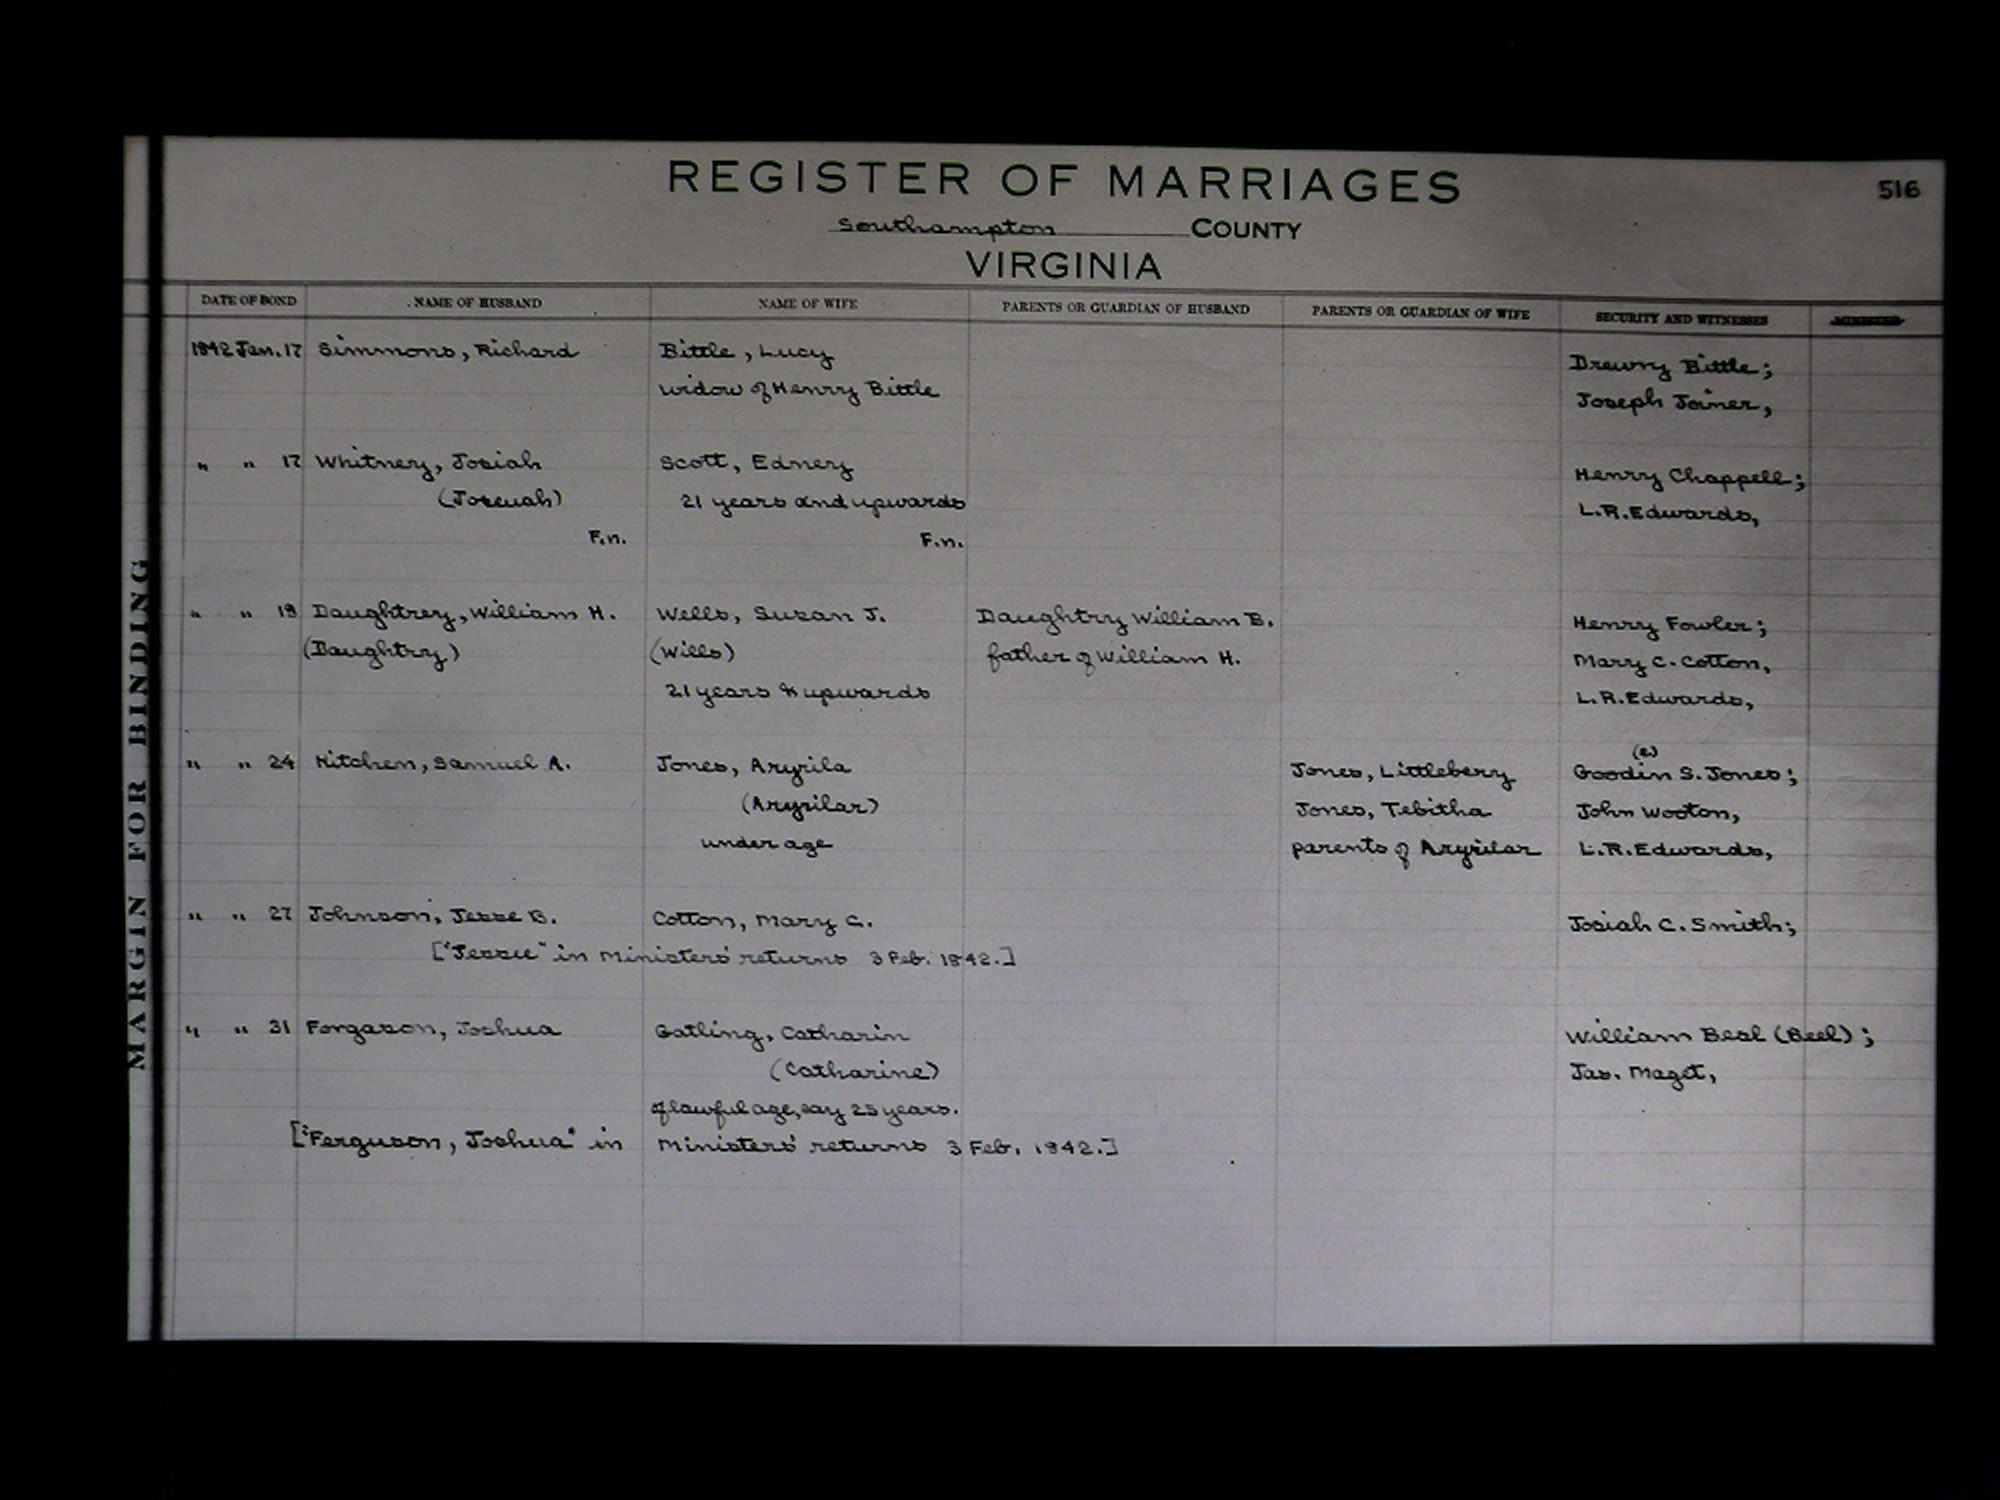 REGISTER OF MARRIAGES
516
Southampton COUNTY
VIRGINIA
DATE OF BOND NAME OF HUSBAND NAME OF WIFE PARENTS OR GUARDIAN OF HUSBAND PARENTS OR GUARDIAN OF WIFE SECURITY AND WITNESSES MINISTER
1842 Jan. 17 Simmons, Richard Bittle, Lucy Drewry Bittle;
widow of Henry Bittle Joseph Joiner,
" " 17 Whitney, Josiah Scott, Edney Henry Chappell;
(Joseuah) 21 years and upwards L.R. Edwards,
F.n. F.n.
" " 19 Daughtrey, William H. Wells, Susan J. Daughtry William B. Henry Fowler;
(Daughtry) (Wills) father of William H. Mary C. Cotton,
21 years & upwards L.R. Edwards,
(e)
" " 24 Kitchen, Samuel A. Jones, Aryrila Jones, Littlebery Goodin S. Jones;
(Aryrilar) Jones, Tebitha John Wooton,
under age parents of Aryrilar L.R. Edwards,
" " 27 Johnson, Jesse B. Cotton, Mary C. Josiah C. Smith;
["Jessie" in Ministers' returns 3 Feb. 1842.]
" " 31 Forgason, Joshua Gatling, Catharin William Beal (Beel);
(Catharine) Jas. Maget,
of lawful age, say 25 years.
["Ferguson, Joshua" in Ministers' returns 3 Feb. 1842.]
MARGIN FOR BINDING